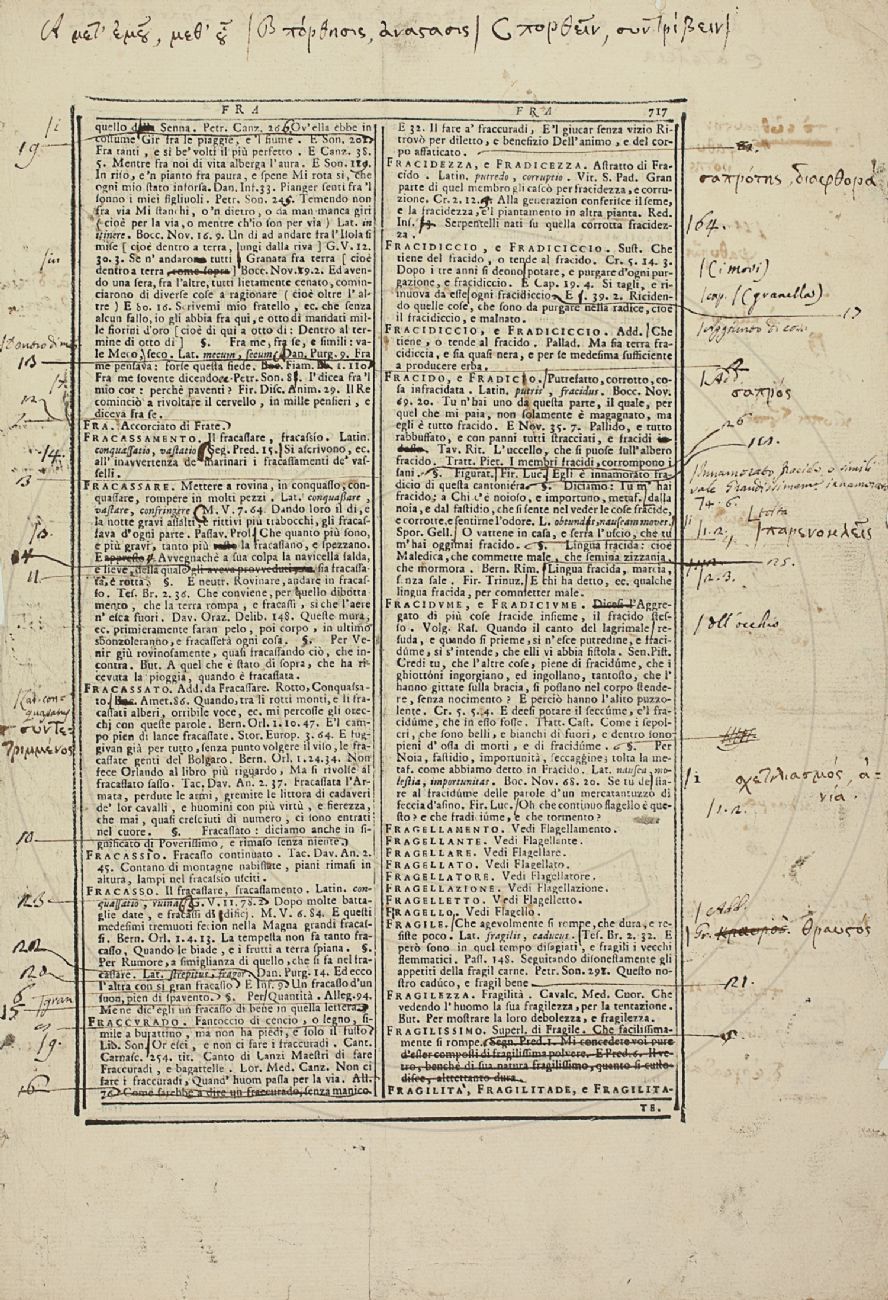 A μετ' ἐμοῦ, μεθ' οὗ | B πόρθησις, ἀνάστασις | C πορθεῖν, συντρίβειν |
FRA
FRA 717
quello della Senna. Petr. Canz. 26. Ov'ella ebbe in
costume Gir fra le piagge, e 'l fiume. E Son. 202.
Fra tanti, e sì be' volti il più perfetto. E Canz. 38.
5. Mentre fra noi di vita alberga l'aura. E Son. 119.
In riso, e'n pianto fra paura, e spene Mi rota sì, che
ogni mio stato inforsa. Dan. Inf. 33. Pianger senti' fra 'l
sonno i miei figliuoli. Petr. Son. 245. Temendo non
fra via Mi stanchi, o'n dietro, o da man manca giri
[ cioè per la via, o mentre ch'io son per via ) Lat. in
itinere. Bocc. Nov. 16. 9. Un dì ad andare fra l'Isola si
mise [ cioè dentro a terra, lungi dalla riva ] G. V. 12.
30. 3. Se n' andarono tutti a Granata fra terra [ cioè
dentro a terra come sopra ] Bocc. Nov. 19. 2. Ed aven-
do una sera, fra l'altre, tutti lietamente cenato, comin-
ciarono di diverse cose a ragionare ( cioè oltre l' al-
tre ) E 80. 16. Scrivemi mio fratello, ec. che senza
alcun fallo, io gli abbia fra qui, e otto dì mandati mil-
le fiorini d'oro [ cioè di qui a otto dì: Dentro al ter-
mine di otto dì ] §. Fra me, fra se, e simili: va-
le Meco, seco. Lat. mecum, secum. Dan. Purg. 9. Fra
me pensava: forse questa fiede. Boc. Fiam. lib. 1. 110
Fra me sovente dicendo e Petr. Son. 88. I' dicea fra'l
mio cor: perchè paventi? Fir. Disc. Anim. 29. Il Re
cominciò a rivoltare il cervello, in mille pensieri, e
diceva fra se.
FRA. Accorciato di Frate.
FRACASSAMENTO. Il fracassare, fracassio. Latin.
conquassatio, vastatio Seg. Pred. 15. Si ascrivono, ec.
all' inavvertenza de' marinari i fracassamenti de' vas-
selli.
FRACASSARE. Mettere a rovina, in conquasso, con-
quassare, rompere in molti pezzi. Lat. conquassare,
vastare, confringere M. V. 7. 64. Dando loro il dì, e
la notte gravi assalti, e rittivi più trabocchi, gli fracas-
sava d'ogni parte. Passav. Prol. Che quanto più sono,
e più gravi, tanto più tosto la fracassano, e spezzano.
E appresso: Avvegnachè a sua colpa la navicella salda,
e lieve, della qual gli aveva provveduti pria, sia fracassa-
ta, e rotta. §. E neutr. Rovinare, andare in fracas-
so. Tes. Br. 2. 36. Che conviene, per quello dibotta-
mento, che la terra rompa, e fracassi, sì che l'aere
n' esca fuori. Dav. Oraz. Delib. 148. Queste mura,
ec. primieramente faran pelo, poi corpo, in ultimo
sbonzoleranno, e fracasserà ogni cosa. §. Per Ve-
nir giù rovinosamente, quasi fracassando ciò, che in-
contra. But. A quel che è stato di sopra, che ha ri-
cevuta la pioggia, quando è fracassata.
FRACASSATO. Add. da Fracassare. Rotto, Conquassa-
to. Boc. Amet. 86. Quando, tra li rotti monti, e li fra-
cassati alberi, orribile voce, ec. mi percosse gli orec-
chi con queste parole. Bern. Orl. 1. 10. 47. E'l cam-
po pien di lance fracassate. Stor. Europ. 3. 64. E fug-
givan già per tutto, senza punto volgere il viso, le fra-
cassate genti del Bolgaro. Bern. Orl. 1. 24. 34. Non
fece Orlando al libro più riguardo, Ma si rivolse al
fracassato sasso. Tac. Dav. An. 2. 37. Fracassata l'Ar-
mata, perdute le armi, gremite le littora di cadaveri
de' lor cavalli, e huomini con più virtù, e fierezza,
che mai, quasi cresciuti di numero, ci sono entrati
nel cuore. §. Fracassato: diciamo anche in si-
gnificato di Poverissimo, e rimaso senza niente.
FRACASSIO. Fracasso continuato. Tac. Dav. An. 2.
45. Contano di montagne nabissate, piani rimasi in
altura, lampi nel fracassio usciti.
FRACASSO. Il fracassare, fracassamento. Latin. con-
quassatio, ruina G. V. 11. 78. 2. Dopo molte batta-
glie date, e fracassi di difici. M. V. 6. 84. E questi
medesimi tremuoti fecion nella Magna grandi fracas-
si. Bern. Orl. 1. 4. 13. La tempesta non fa tanto fra-
casso, Quando le biade, e i frutti a terra spiana. §.
Per Rumore, a simiglianza di quello, che si fa nel fra-
cassare. Lat. strepitus, fragor. Dan. Purg. 14. Ed ecco
l'altra con sì gran fracasso. E Inf. 9. Un fracasso d'un
suon, pien di spavento. §. Per Quantità. Alleg. 94.
Me ne dic'egli un fracasso di bene in quella lettera.
FRACCURADO. Fantoccio di cencio, o legno, si-
mile a burattino, ma non ha piedi, e solo il fusto
Lib. Son. Or esci, e non ci fare i fraccuradi. Cant.
Carnasc. 254. tit. Canto di Lanzi Maestri di fare
Fraccuradi, e bagattelle. Lor. Med. Canz. Non ci
fare i fraccuradi, Quand' huom passa per la via. All.
76. Come sarebbe a dire un fraccurado, senza manico.
E 32. Il fare a' fraccuradi, E 'l giucar senza vizio Ri-
trovò per diletto, e benefizio Dell'animo, e del cor-
po affaticato.
FRACIDEZZA, e FRADICEZZA. Astratto di Fra-
cido. Latin. putredo, corruptio. Vit. S. Pad. Gran
parte di quel membro gli cascò per fracidezza, e corru-
zione. Cr. 2. 12. 4. Alla generazion conferisce il seme,
e la fracidezza, e'l piantamento in altra pianta. Red.
Ins. Serpentelli nati su quella corrotta fracidez-
za.
FRACIDICCIO, e FRADICICCIO. Sust. Che
tiene del fracido, o tende al fracido. Cr. 5. 14. 3.
Dopo i tre anni si deono potare, e purgare d'ogni pur-
gazione, e fracidiccio. E Cap. 19. 4. Si tagli, e ri-
muova da esse ogni fracidiccio. E f. 39. 2. Riciden-
do quelle cose, che sono da purgare nella radice, cioè
il fracidiccio, e malnato.
FRACIDICCIO, e FRADICICCIO. Add. Che
tiene, o tende al fracido. Pallad. Ma sia terra fra-
cidiccia, e sia quasi nera, e per se medesima sufficiente
a producere erba.
FRACIDO, e FRADICIO. Putrefatto, corrotto, co-
sa infracidata. Latin. putris, fracidus. Bocc. Nov.
69. 20. Tu n'hai uno da questa parte, il quale, per
quel che mi paia, non solamente è magagnato, ma
egli è tutto fracido. E Nov. 35. 7. Pallido, e tutto
rabbuffato, e con panni tutti stracciati, e fracidi in-
dosso. Tav. Rit. L'uccello, che si puose sull'albero
fracido. Tratt. Piet. I membri fracidi, corrompono i
sani. §. Figurat. Fir. Luc. Egli è innamorato fra-
dicio di questa cantoniera. §. Diciamo: Tu m' hai
fracido: a Chi c'è noioso, e importuno, metaf. dalla
noia, e dal fastidio, che si sente nel veder le cose fracide,
e corrotte, e sentirne l'odore. L. obtundis, nauseam mover.
Spor. Gell. O vattene in casa, e serra l'uscio, che tu
m'hai oggimai fracido. §. Lingua fracida: cioè
Maledica, che commette male, che semina zizzania,
che mormora. Bern. Rim. Lingua fracida, marcia,
senza sale. Fir. Trinuz. E chi ha detto, ec. qualche
lingua fracida, per commetter male.
FRACIDUME, e FRADICIUME. Dicesi l'Aggre-
gato di più cose fracide insieme, il fracido stes-
so. Volg. Ras. Quando il canto del lagrimale re-
suda, e quando si prieme, si n'esce putredine, e fraci-
dúme, si s'intende, che elli vi abbia fistola. Sen. Pist.
Credi tu, che l'altre cose, piene di fracidúme, che i
ghiottóni ingorgiano, ed ingollano, tantosto, che l'
hanno gittate sulla bracia, si possano nel corpo stende-
re, senza nocimento? E perciò hanno l'alito puzzo-
lente. Cr. 5. 5. 4. E desi potare il seccúme, e'l fra-
cidúme, che in esso fosse. Tratt. Cast. Come i sepol-
cri, che sono belli, e bianchi di fuori, e dentro sono
pieni d' ossa di morti, e di fracidúme. §. Per
Noia, fastidio, importunità, seccaggine; tolta la me-
taf. come abbiamo detto in Fracido. Lat. nausea, mo-
lestia, importunitas. Boc. Nov. 68. 20. Se tu dei sta-
re al fracidúme delle parole d'un mercatantuzzo di
feccia d'asino. Fir. Luc. Oh che continuo flagello è que-
sto? e che fradiciúme, e che tormento?
FRAGELLAMENTO. Vedi Flagellamento.
FRAGELLANTE. Vedi Flagellante.
FRAGELLARE. Vedi Flagellare.
FRAGELLATO. Vedi Flagellato.
FRAGELLATORE. Vedi Flagellatore.
FRAGELLAZIONE. Vedi Flagellazione.
FRAGELLETTO. Vedi Flagelletto.
FRAGELLO. Vedi Flagello.
FRAGILE. Che agevolmente si rompe, che dura, e re-
siste poco. Lat. fragilis, caducus. Tes. Br. 2. 32. E
però sono in quel tempo disagiati, e fragili i vecchi
flemmatici. Pass. 148. Seguitando disonestamente gli
appetiti della fragil carne. Petr. Son. 291. Questo no-
stro cadúco, e fragil bene
FRAGILEZZA. Fragilità. Cavalc. Med. Cuor. Che
vedendo l'huomo la sua fragilezza, per la tentazione.
But. Per mostrare la loro debolezza, e fragilezza.
FRAGILISSIMO. Superl. di Fragile. Che facilissima-
mente si rompe. Segn. Pred. 1. Mi concedete voi pure
d'esser composti di fragilissima polvere. E Pred. 6. Il ve-
tro, benchè di sua natura fragilissimo, quanto si custo-
disce, altrettanto dura.
FRAGILITA', FRAGILITADE, e FRAGILITA-
TE.
19
13
12
14.
13
11
συντε-
τριμμένος
10
123
222
20
15
19.
16
σαπρότης, διαφθορά
164.
(i movi)
(granella)
17
Add.
σαπρός
26
74. 6.
παρενοχλεῖς
25.
12. 3.
dell'occhio
σχετλιασμός, ἀ-
νία.
Add.
Gr. θραυστός
21.